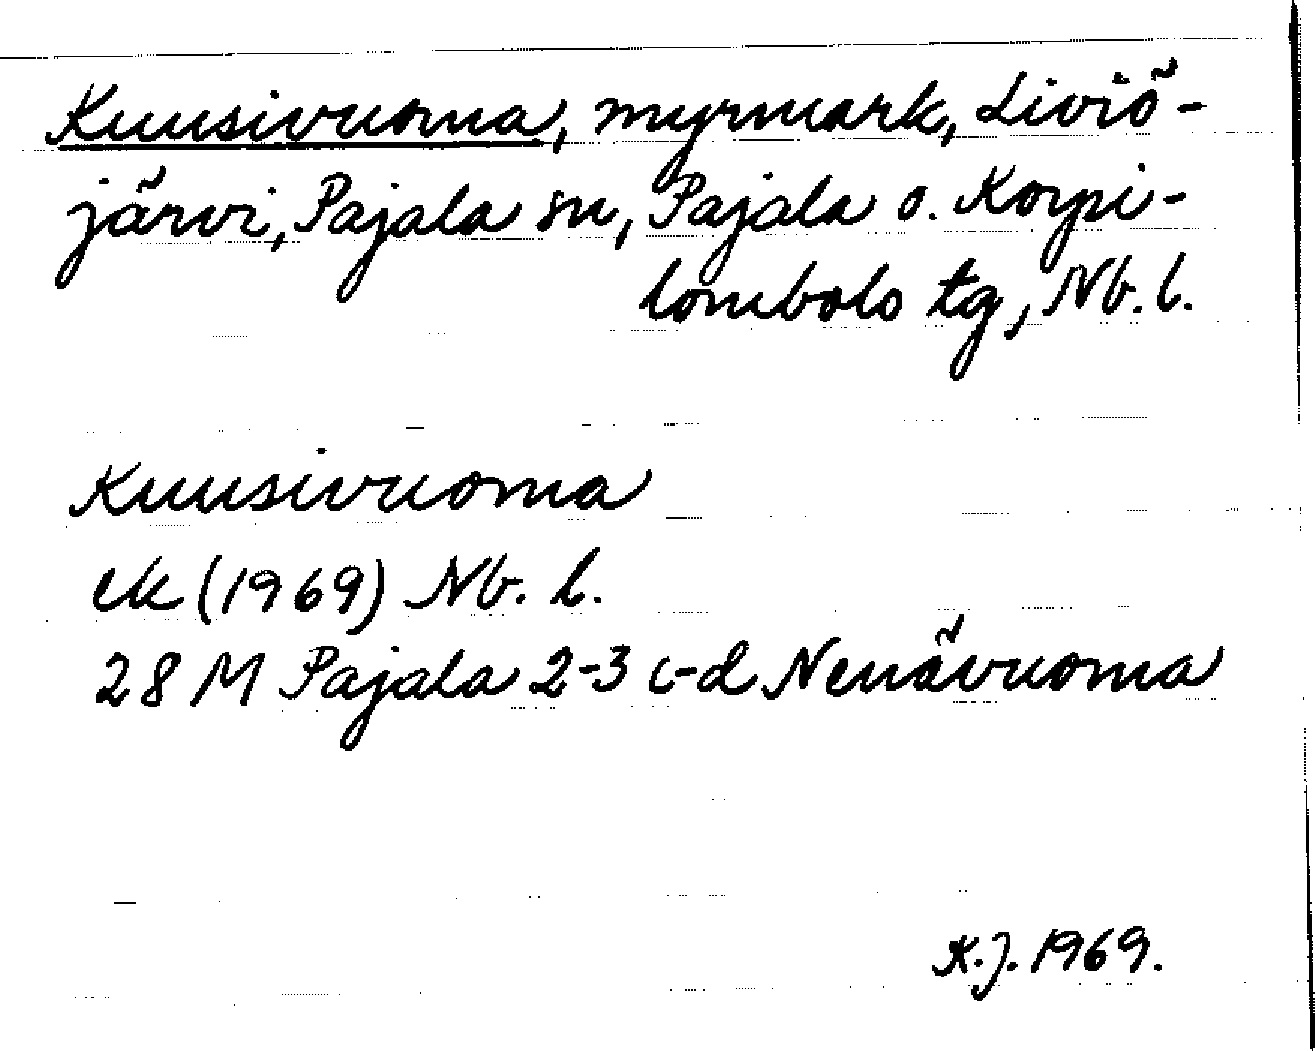 Kuusivuoma, myrmark, Liviö-
järvi, Pajala sn, Pajala o. Korpi-
lombolo tg, Nb. l.
Kuusivuoma
ek (1969) Nb. l.
28 M Pajala 2-3 c-d Nenävuoma
K.J. 1969.